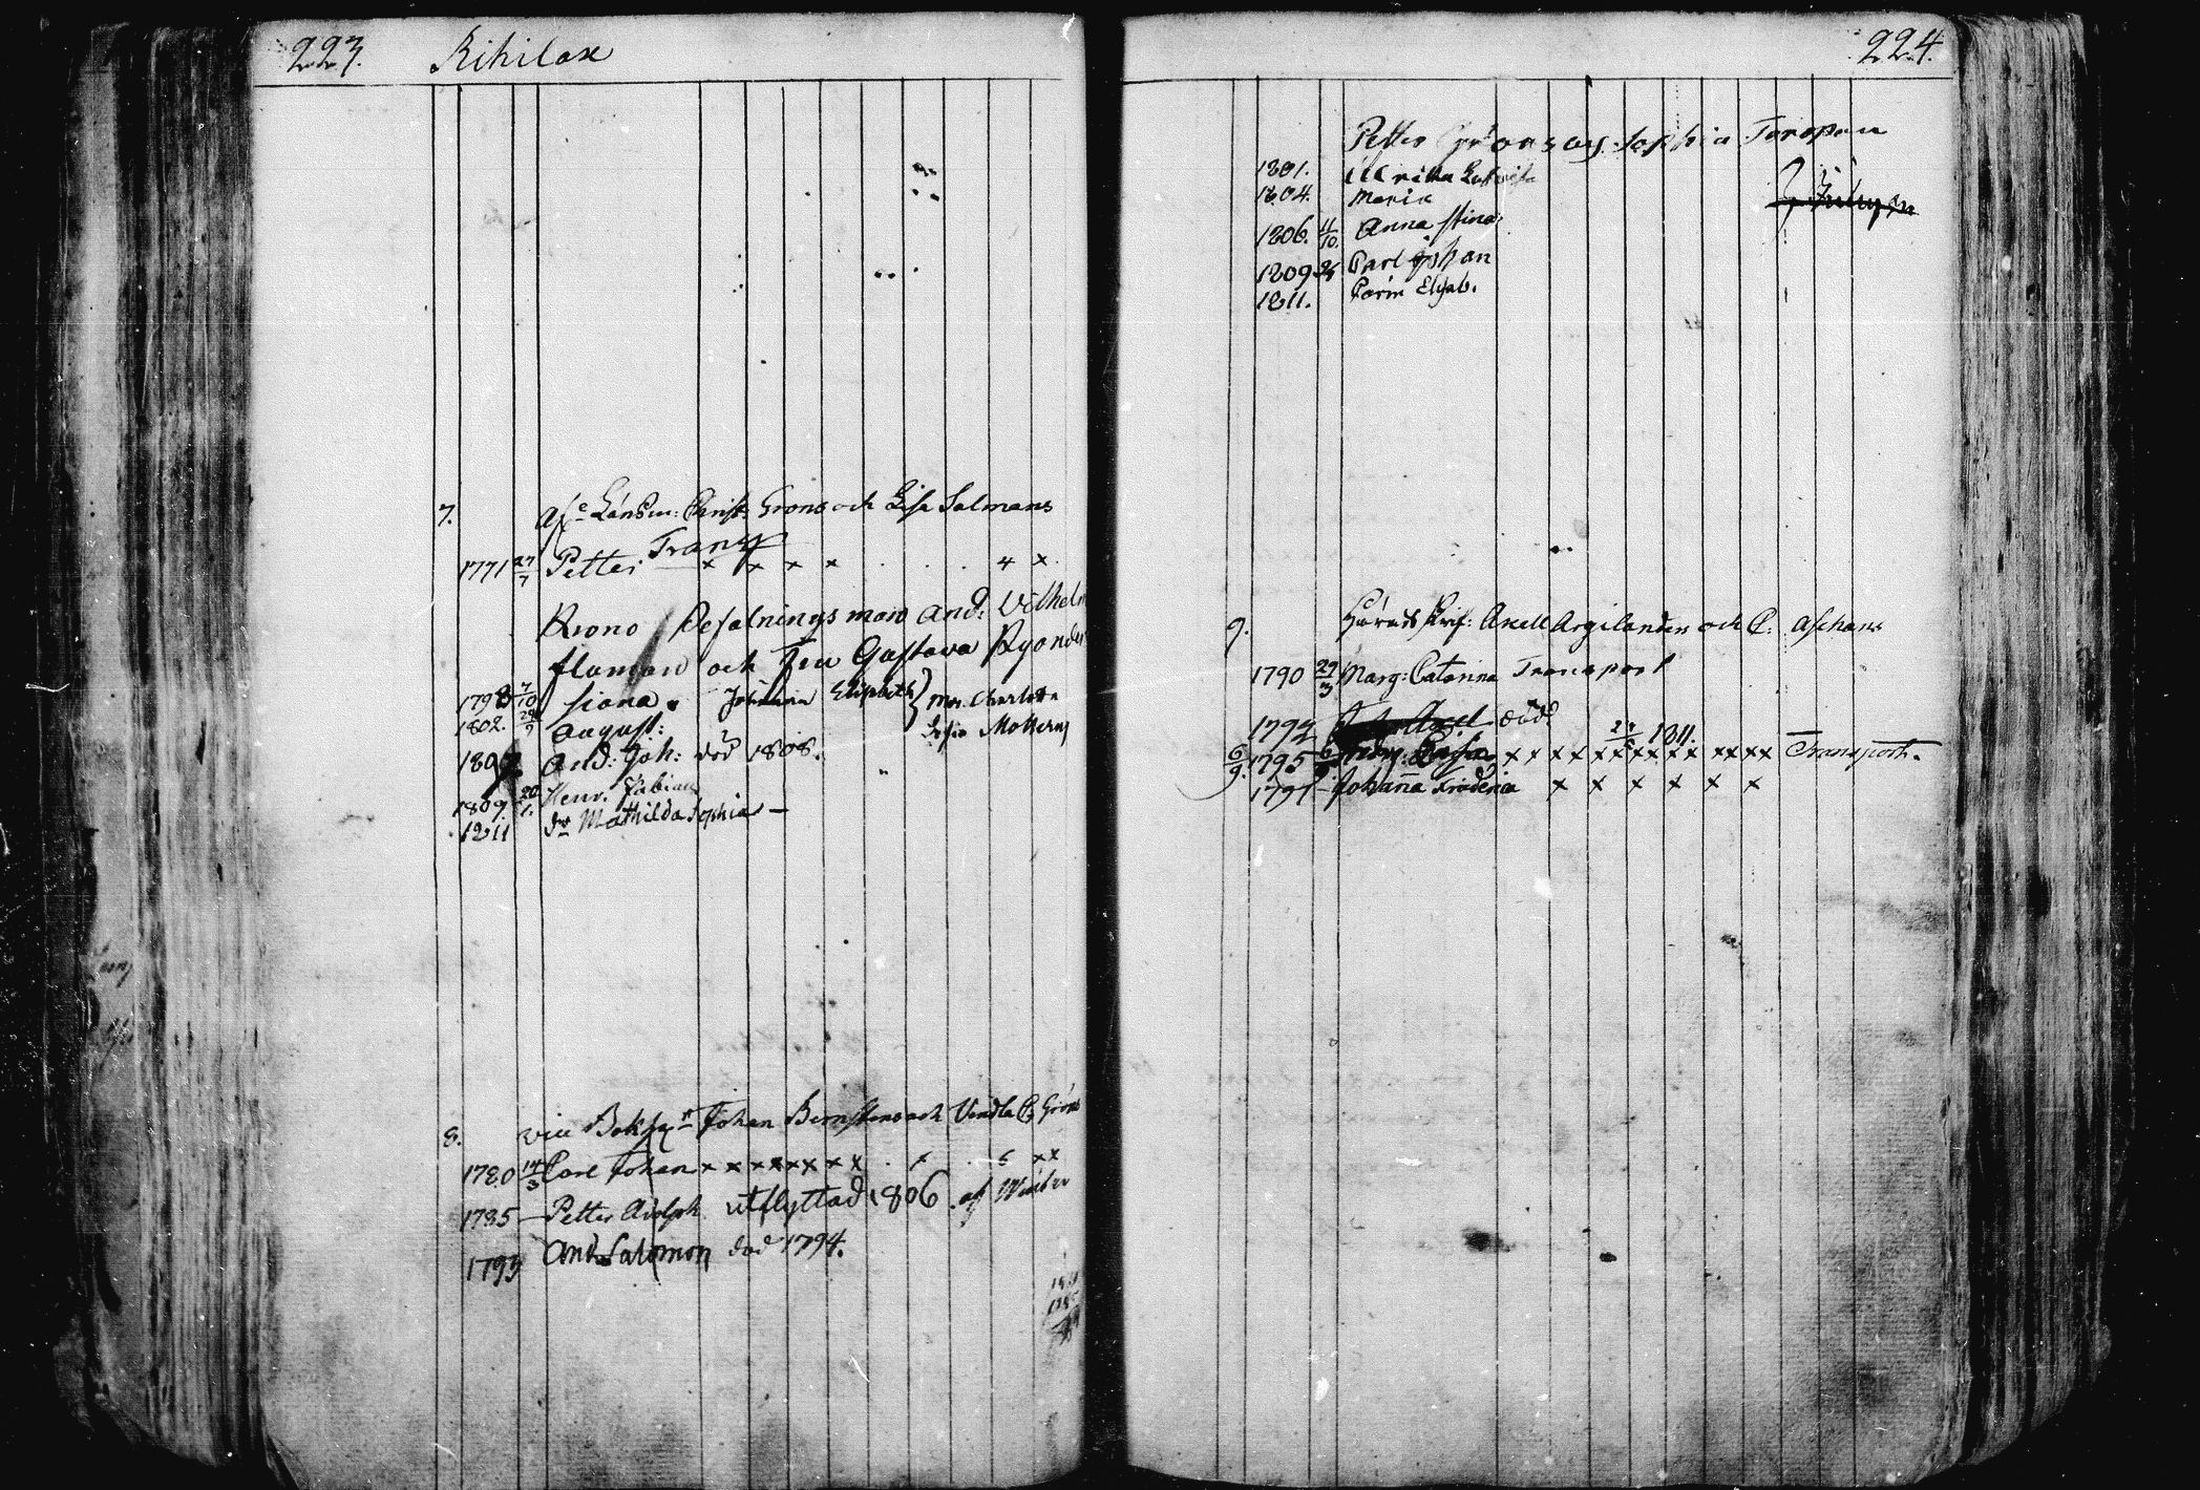 223. Kihilax
7. Afl. Länsm: Christ: Grons och Lisa Salmans
1771 27/7 Petter Transp x x x x . . . 4 x
Krono Befalningsman And: Wilhelm
flaman och Fru Gustava Ryonder
1798 7/10 siana. Johanna Elisabeth } Mar. Charlotta
1802. 29/9 August: Lisa Mollerus
180 And: Joh: död 1808.
1809. 20/1. Henr. Fabian
1811 Mathilda Sophia —
8. vice Johan Bernstens och Vendla C. Gröns
1780 14/3 Carl Johan x x x x x x x x . x . 6 x x
1785 — Petter Adolph utflyttad 1806 af
1793 And. Salomon död 1794.
224.
Petter Grönss och Sophia Toropain
1801. Ulrika Lovisa
1804. Maria
1806. 11/10. Anna Stina
1809 Carl Johan
1811. Carin Elisab.
9. Härads Skrif: Axell Argilander och C: Aschans
1790 29/3 Marg: Catarina Transport
1792 Axel död
6/9. 1795 x x x x x x x x x x x x x 1811. Transport.
1797 — Johanna Fridrica x x x x x x